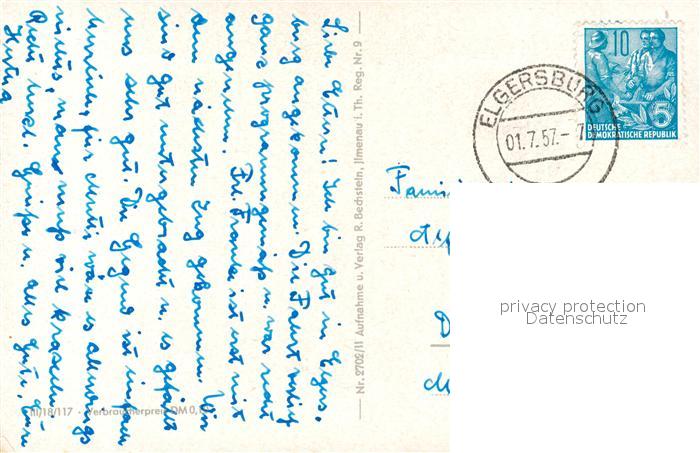 Liebe Eltern! Ich bin gut in Elgers-
burg angekommen. Die Fahrt verlief
ganz programmgemäß u. war recht
angenehm. Frl. Franke ist erst mit
dem nächsten Zug gekommen. Wir
sind gut untergebracht u. es gefällt
uns sehr gut. Die Gegend ist einfach
herrlich, für wäre es allerdings
nichts, man muß viel kraxeln.
Recht herzl. Grüße u. alles Gute, Eure
Nr. 2702/II Aufnahme u. Verlag R. Bechstein, Jlmenau i. Th. Reg. Nr. 9
III/18/117 · Verbraucherpreis DM 0,
10
5
DEUTSCHE
DEMOKRATISCHE REPUBLIK
ELGERSBURG
01.7.57.-7
Fami
D
privacy protection
Datenschutz